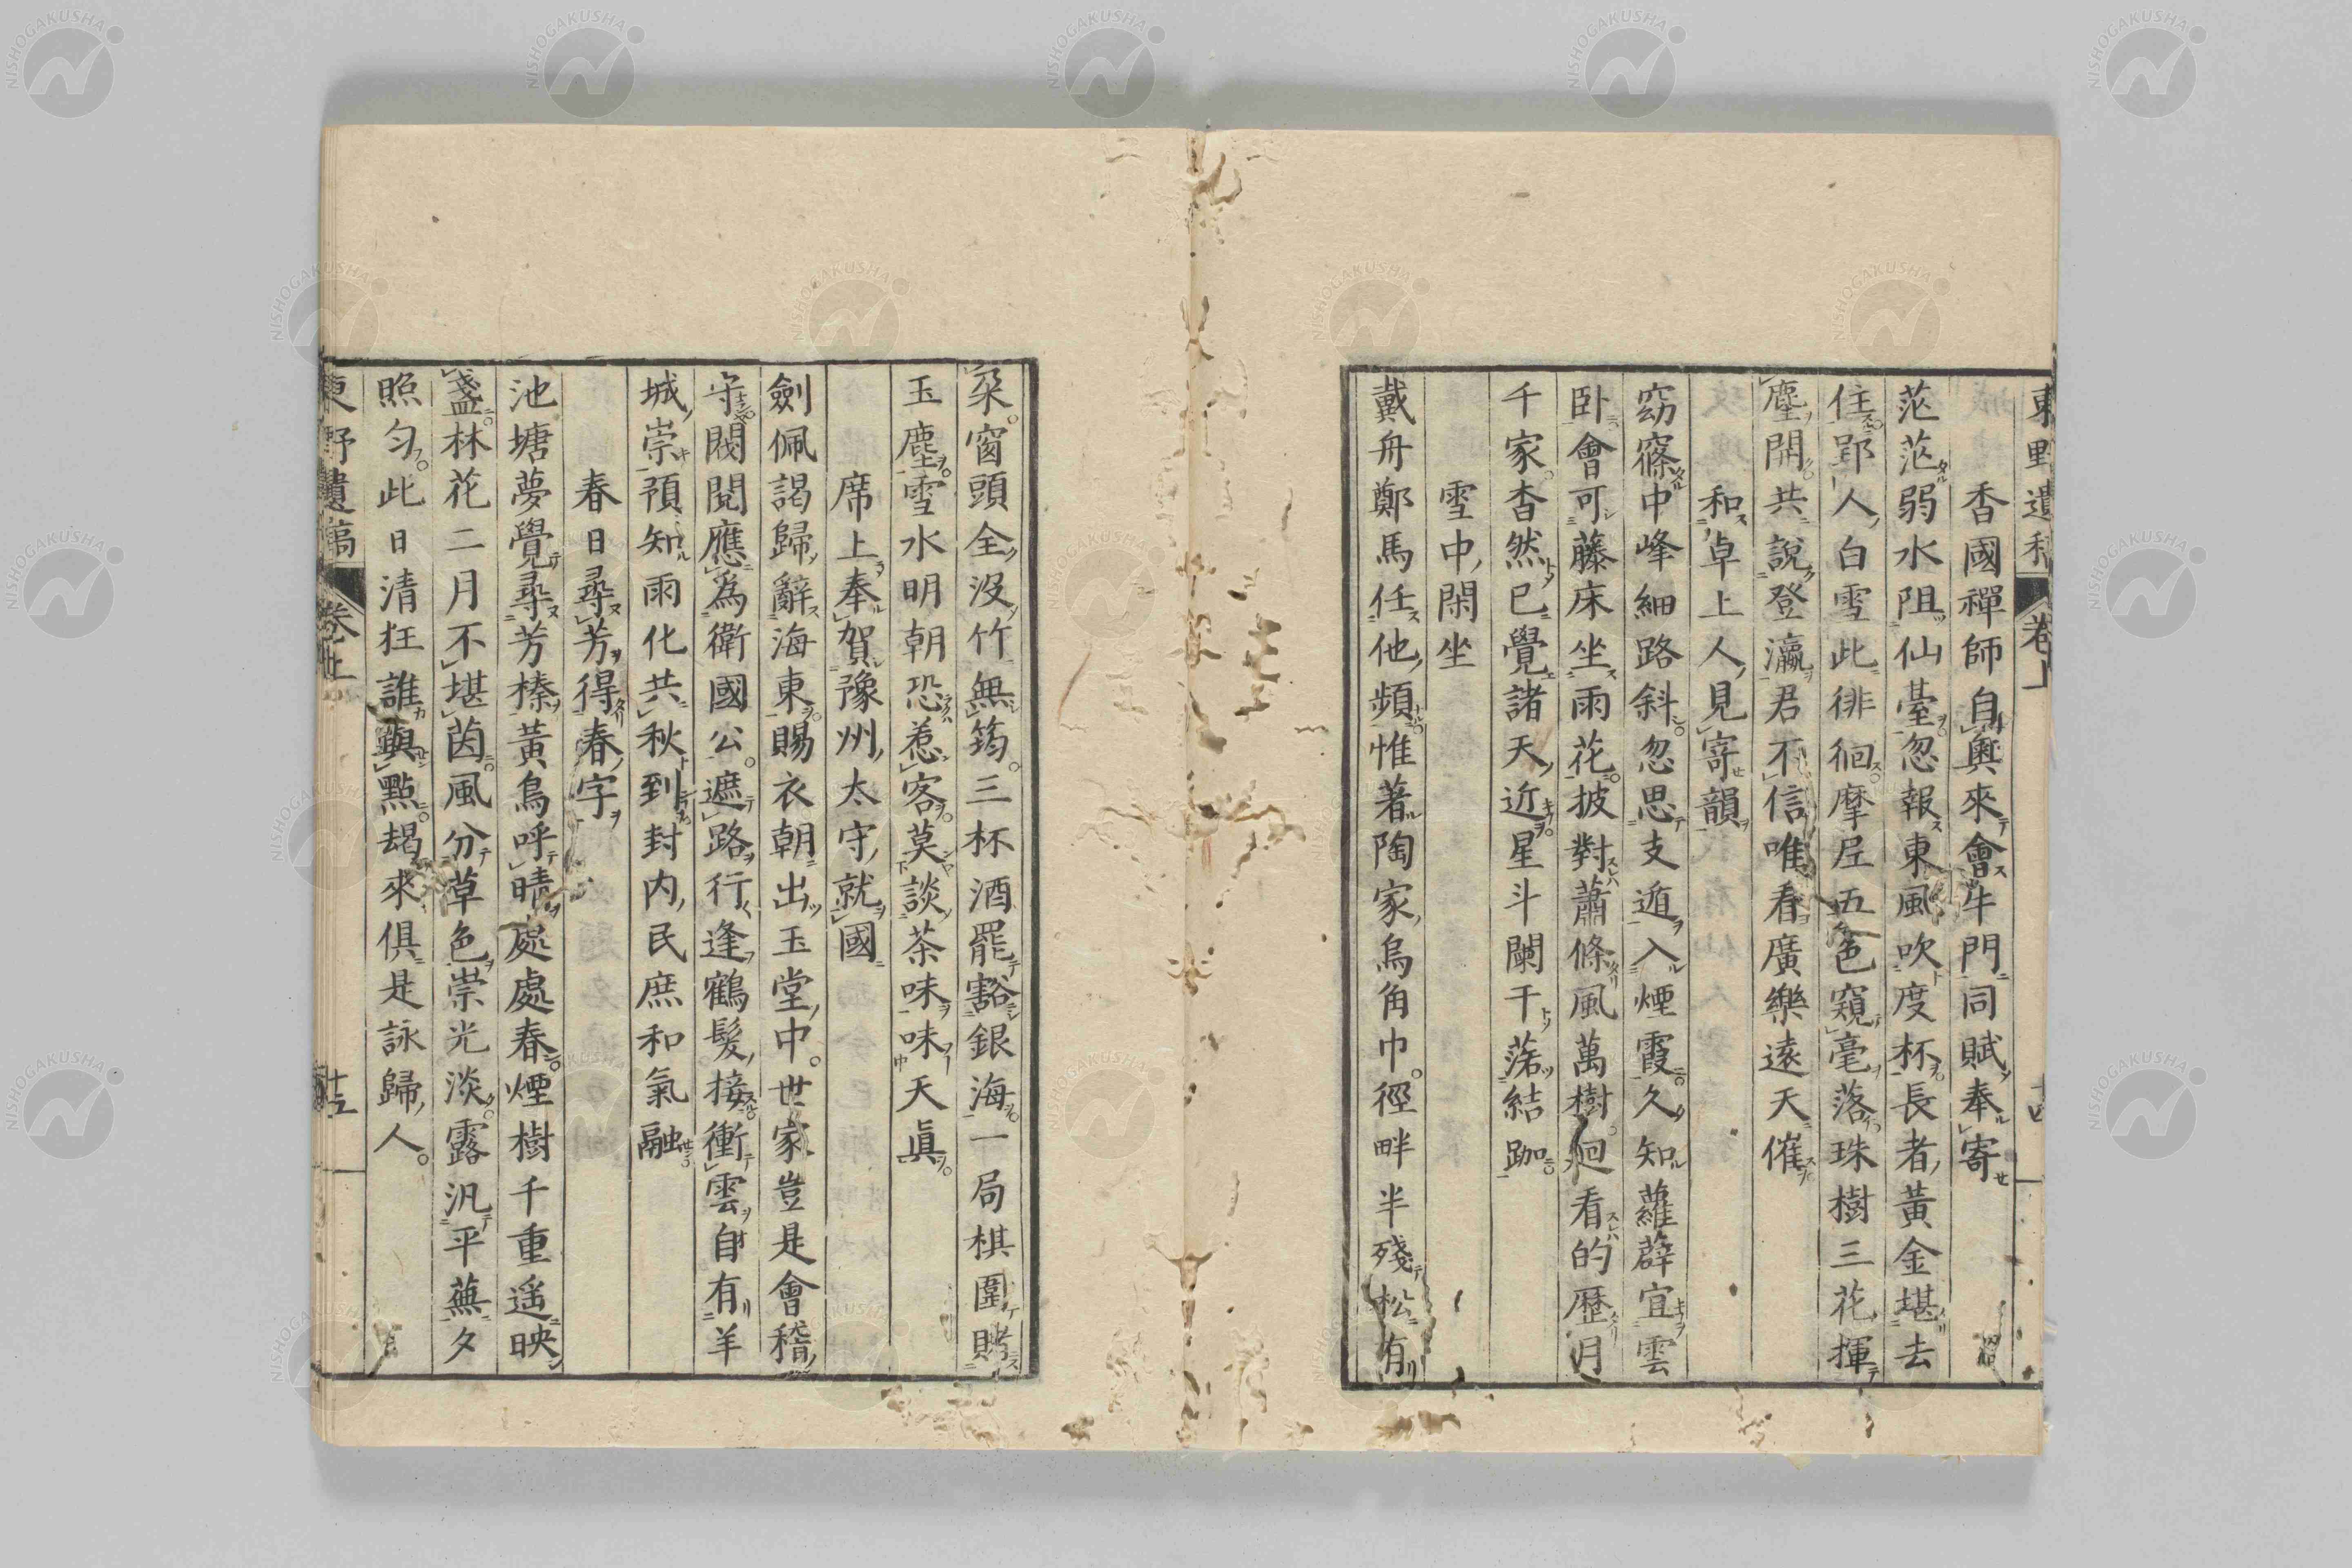 東野遺稿 卷上 十四
香國禪師自奧來會牛門同賦奉寄
茫茫弱水阻仙臺忽報東風吹度杯長者黃金堪去
住郢人白雪此徘徊摩尼五色窺毫落珠樹三花揮
塵開共說登瀛君不信唯看廣樂遠天催
和卓上人見寄韻
窈窱中峰細路斜忽思支遁入煙霞久知蘿薜宜雲
臥會可藤床坐雨花披對蕭條風萬樹迴看的歷月
千家杳然已覺諸天近星斗闌干落結跏
雪中閑坐
戴舟鄭馬任他頻惟著陶家烏角巾徑畔半殘松有
朶窗頭全沒竹無筠三杯酒罷豁銀海一局棋圍賭
玉塵雪水明朝恐惹客莫談茶味味天眞
席上奉賀豫州太守就國
劍佩謁歸辭海東賜衣朝出玉堂中世家豈是會稽
守閥閱應為衛國公遮路行逢鶴髮接衝雲自有羊
城崇預知雨化共秋到封内民庶和氣融
春日尋芳得春字
池塘夢覺尋芳榛黃鳥呼晴處處春煙樹千重遥映
盞林花二月不堪茵風分草色崇光淡露汎平蕪夕
照匀此日清狂誰與點朅來俱是詠歸人
東野遺稿 卷上 十五